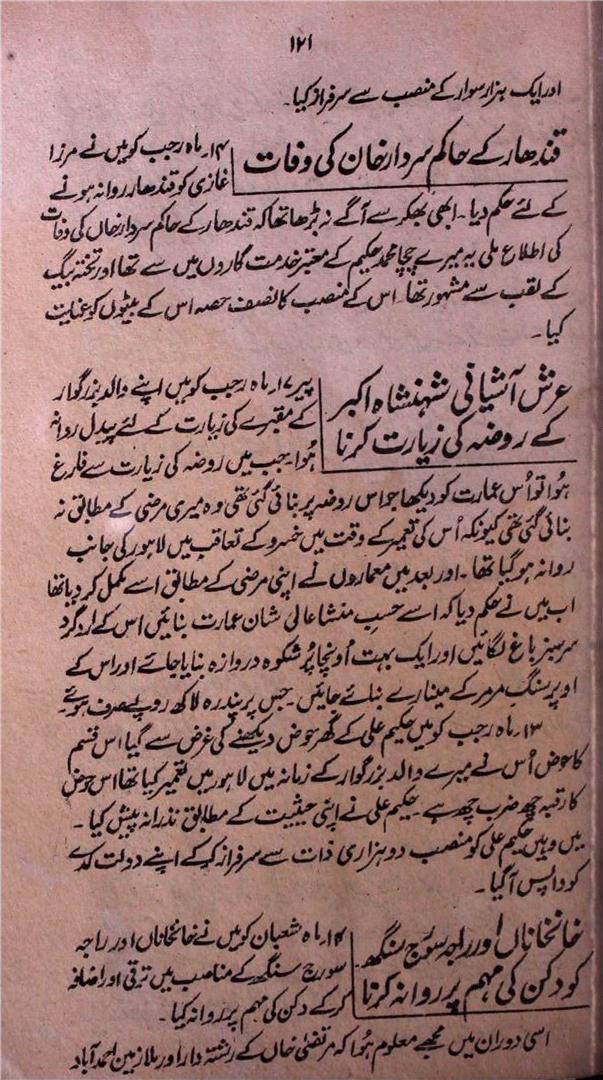 ۱۲۱
اور ایک ہزار سوار کے منصب سے سرفراز کیا۔
قندھار کے حاکم سردار خان کی وفات
۱۴ ماہ رجب کو میں نے مرزا
غازی کو قندھار روانہ ہونے
کے لئے حکم دیا۔ ابھی بھکر سے آگے نہ بڑھا تھا کہ قندھار کے حاکم سردار خاں کی وفات
کی اطلاع ملی یہ میرے چچا محمد حکیم کے معتبر خدمت گاروں میں سے تھا اور تختہ بیگ
کے لقب سے مشہور تھا۔ اس کے منصب کا نصف حصہ اس کے بیٹوں کو عنایت
کیا۔
عرش آشیانی شہنشاہ اکبر
کے روضہ کی زیارت کرنا
پیر ۱۷ ماہ رجب کو میں اپنے والد بزرگوار
کے مقبرے کی زیارت کے لئے پیدل روانہ
ہُوا۔ جب میں روضہ کی زیارت سے فارغ
ہُوا تو اُس عمارت کو دیکھا جو اس روضہ پر بنائی گئی تھی وہ میری مرضی کے مطابق نہ
بنائی گئی تھی کیونکہ اُس کی تعمیر کے وقت میں خسرو کے تعاقب میں لاہور کی جانب
روانہ ہو گیا تھا۔ اور بعد میں معماروں نے اپنی مرضی کے مطابق اسے مکمل کر دیا تھا
اب میں نے حکم دیا کہ اسے حسب منشا عالی شان عمارت بنائیں اس کے اردگرد
سرسبز باغ لگائیں اور ایک بہت اُونچا پُرشکوہ دروازہ بنایا جائے اور اس کے
اوپر سنگِ مرمر کے مینارے بنائے جائیں۔ جس پر پندرہ لاکھ روپے صرف ہوئے
۱۳ ماہ رجب کو میں حکیم علی کے گھر حوض دیکھنے کی غرض سے گیا اس قسم
کا حوض اُس نے میرے والد بزرگوار کے زمانہ میں لاہور میں تعمیر کیا تھا اس حوض
کا رقبہ چھ ضرب چھ ہے۔ حکیم علی نے اپنی حیثیت کے مطابق نذرانہ پیش کیا۔
میں وہیں حکیم علی کو منصب دو ہزاری ذات سے سرفراز کر کے اپنے دولت کدے
کو واپس آ گیا۔
خانخاناں اور راجہ سورج سنگھ
کو دکن کی مہم پر روانہ کرنا
۱۴ ماہ شعبان کو میں نے خانخاناں اور راجہ
سورج سنگھ کے مناصب میں ترقی اور اضافہ
کر کے دکن کی مہم پر روانہ کیا۔
اسی دوران میں مجھے معلوم ہُوا کہ مرتضیٰ خاں کے رشتہ دار اور ملازمین احمد آباد